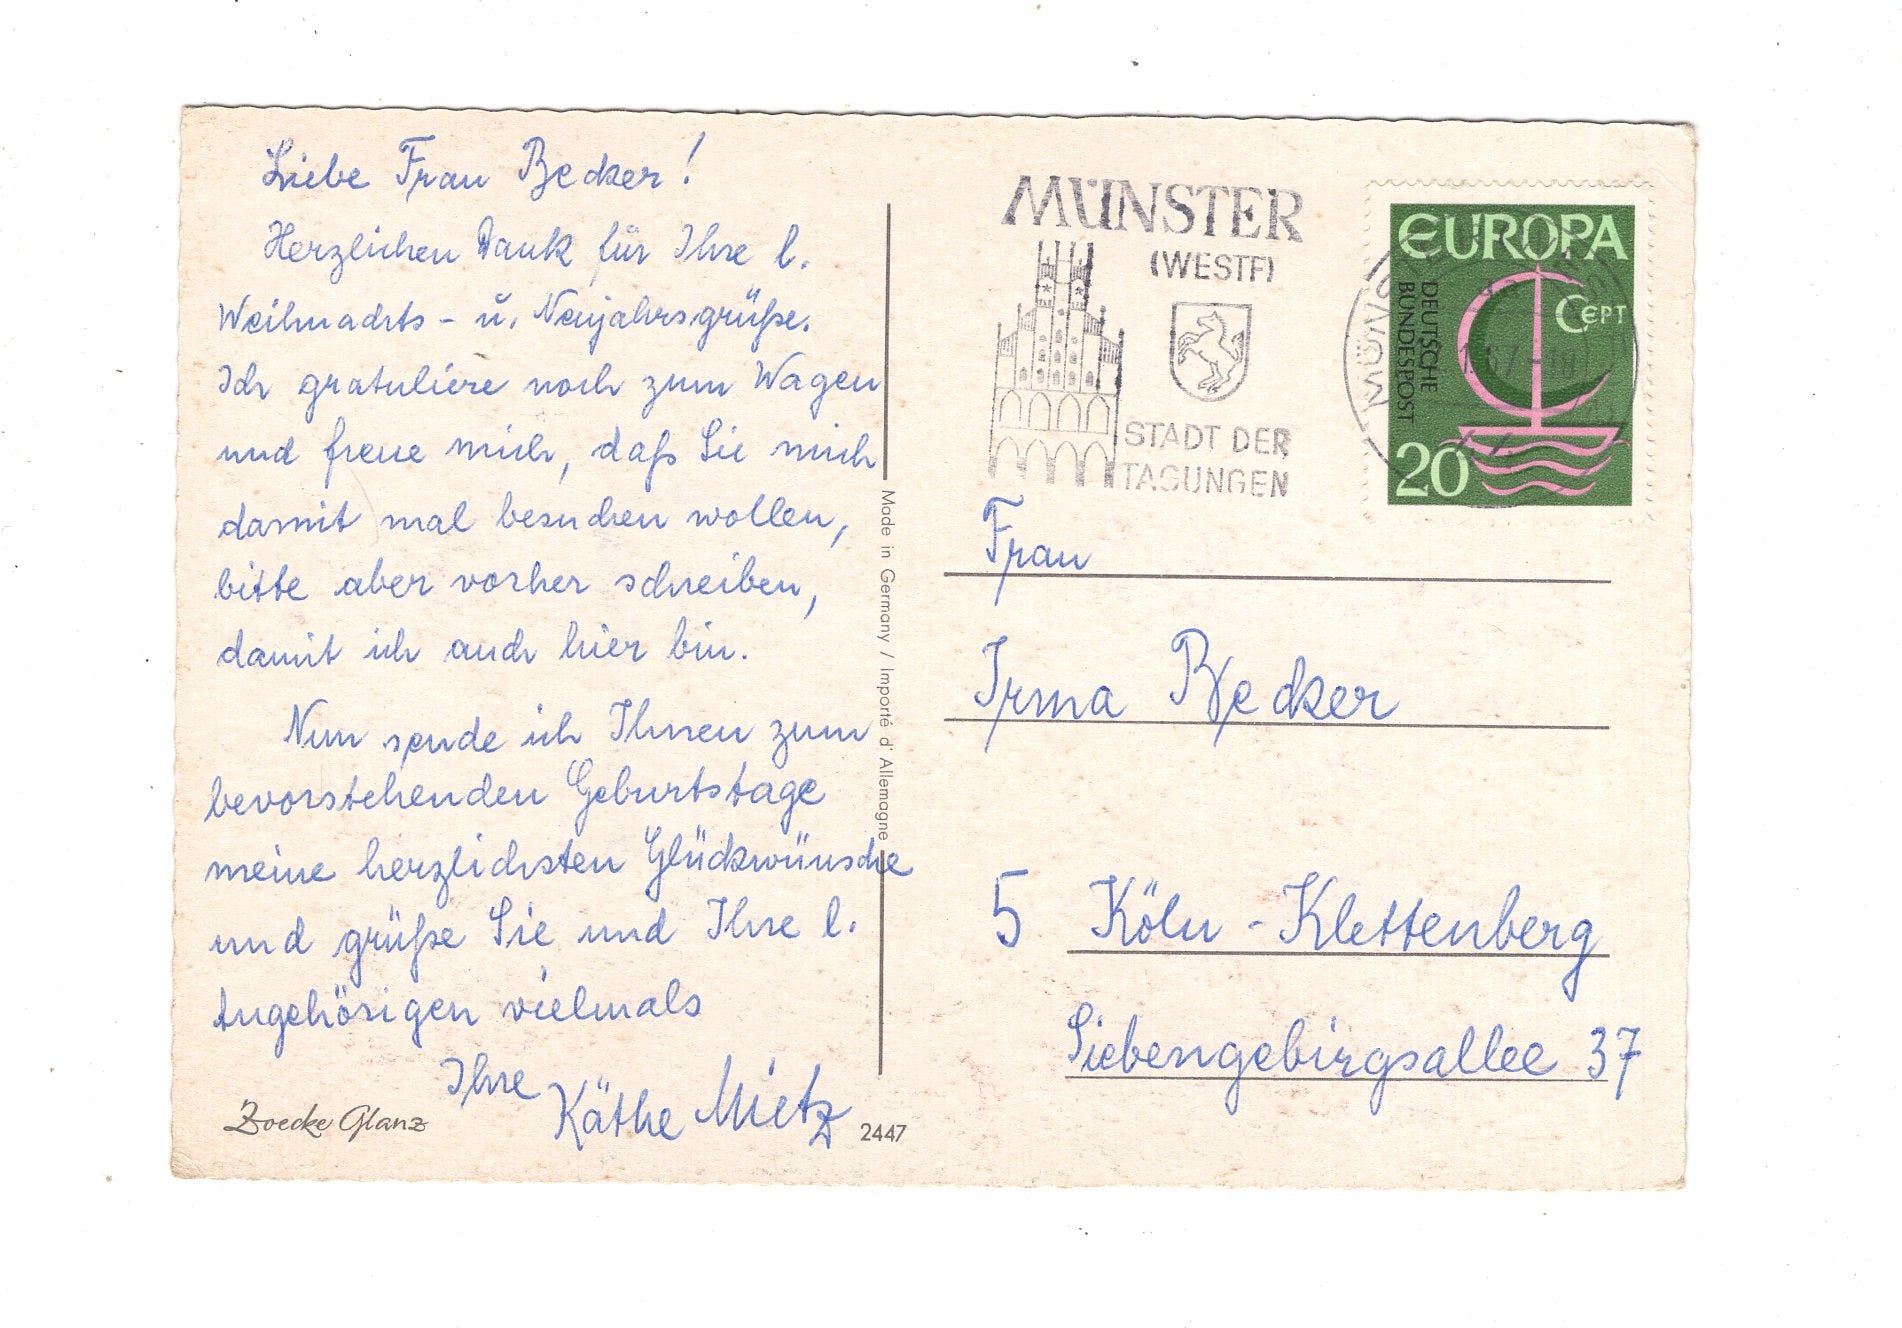 Liebe Frau Becker!
Herzlichen Dank für Ihre l.
Weihnachts- u. Neujahrsgrüße.
Ich gratuliere noch zum Wagen
und freue mich, daß Sie mich
damit mal besuchen wollen,
bitte aber vorher schreiben,
damit ich auch hier bin.
Nun sende ich Ihnen zum
bevorstehenden Geburtstage
meine herzlichsten Glückwünsche
und grüße Sie und Ihre l.
Angehörigen vielmals
Ihre
Käthe Mietz
Zoecke Glanz
2447
Made in Germany / Importé d'Allemagne
MÜNSTER
(WESTF)
STADT DER
TAGUNGEN
EUROPA
CEPT
DEUTSCHE
BUNDESPOST
20
Frau
Irma Becker
5 Köln-Klettenberg
Siebengebirgsallee 37